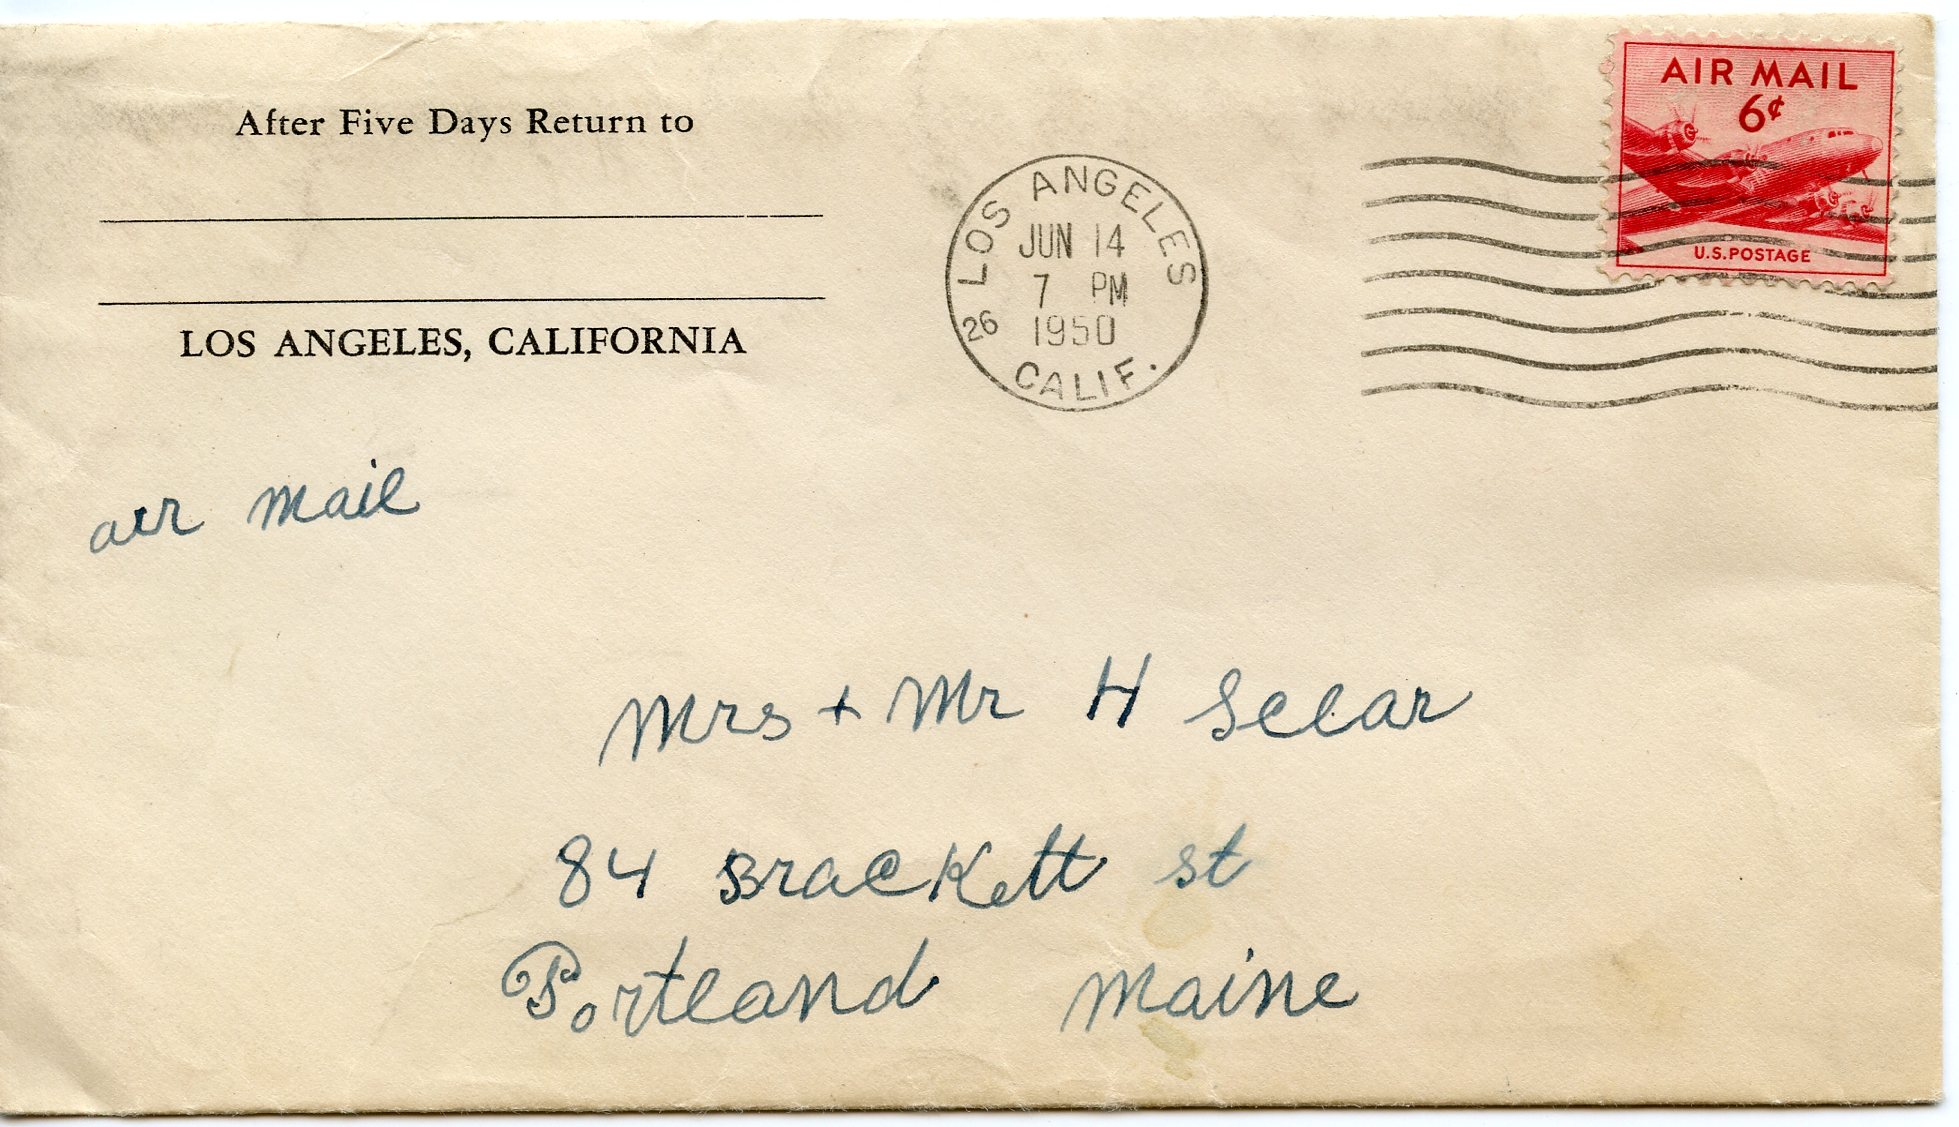 After Five Days Return to
LOS ANGELES, CALIFORNIA
LOS ANGELES
JUN 14
7 PM
1950
26
CALIF.
AIR MAIL
6¢
U.S. POSTAGE
air mail
Mrs + Mr H
84 Brackett st
Portland Maine